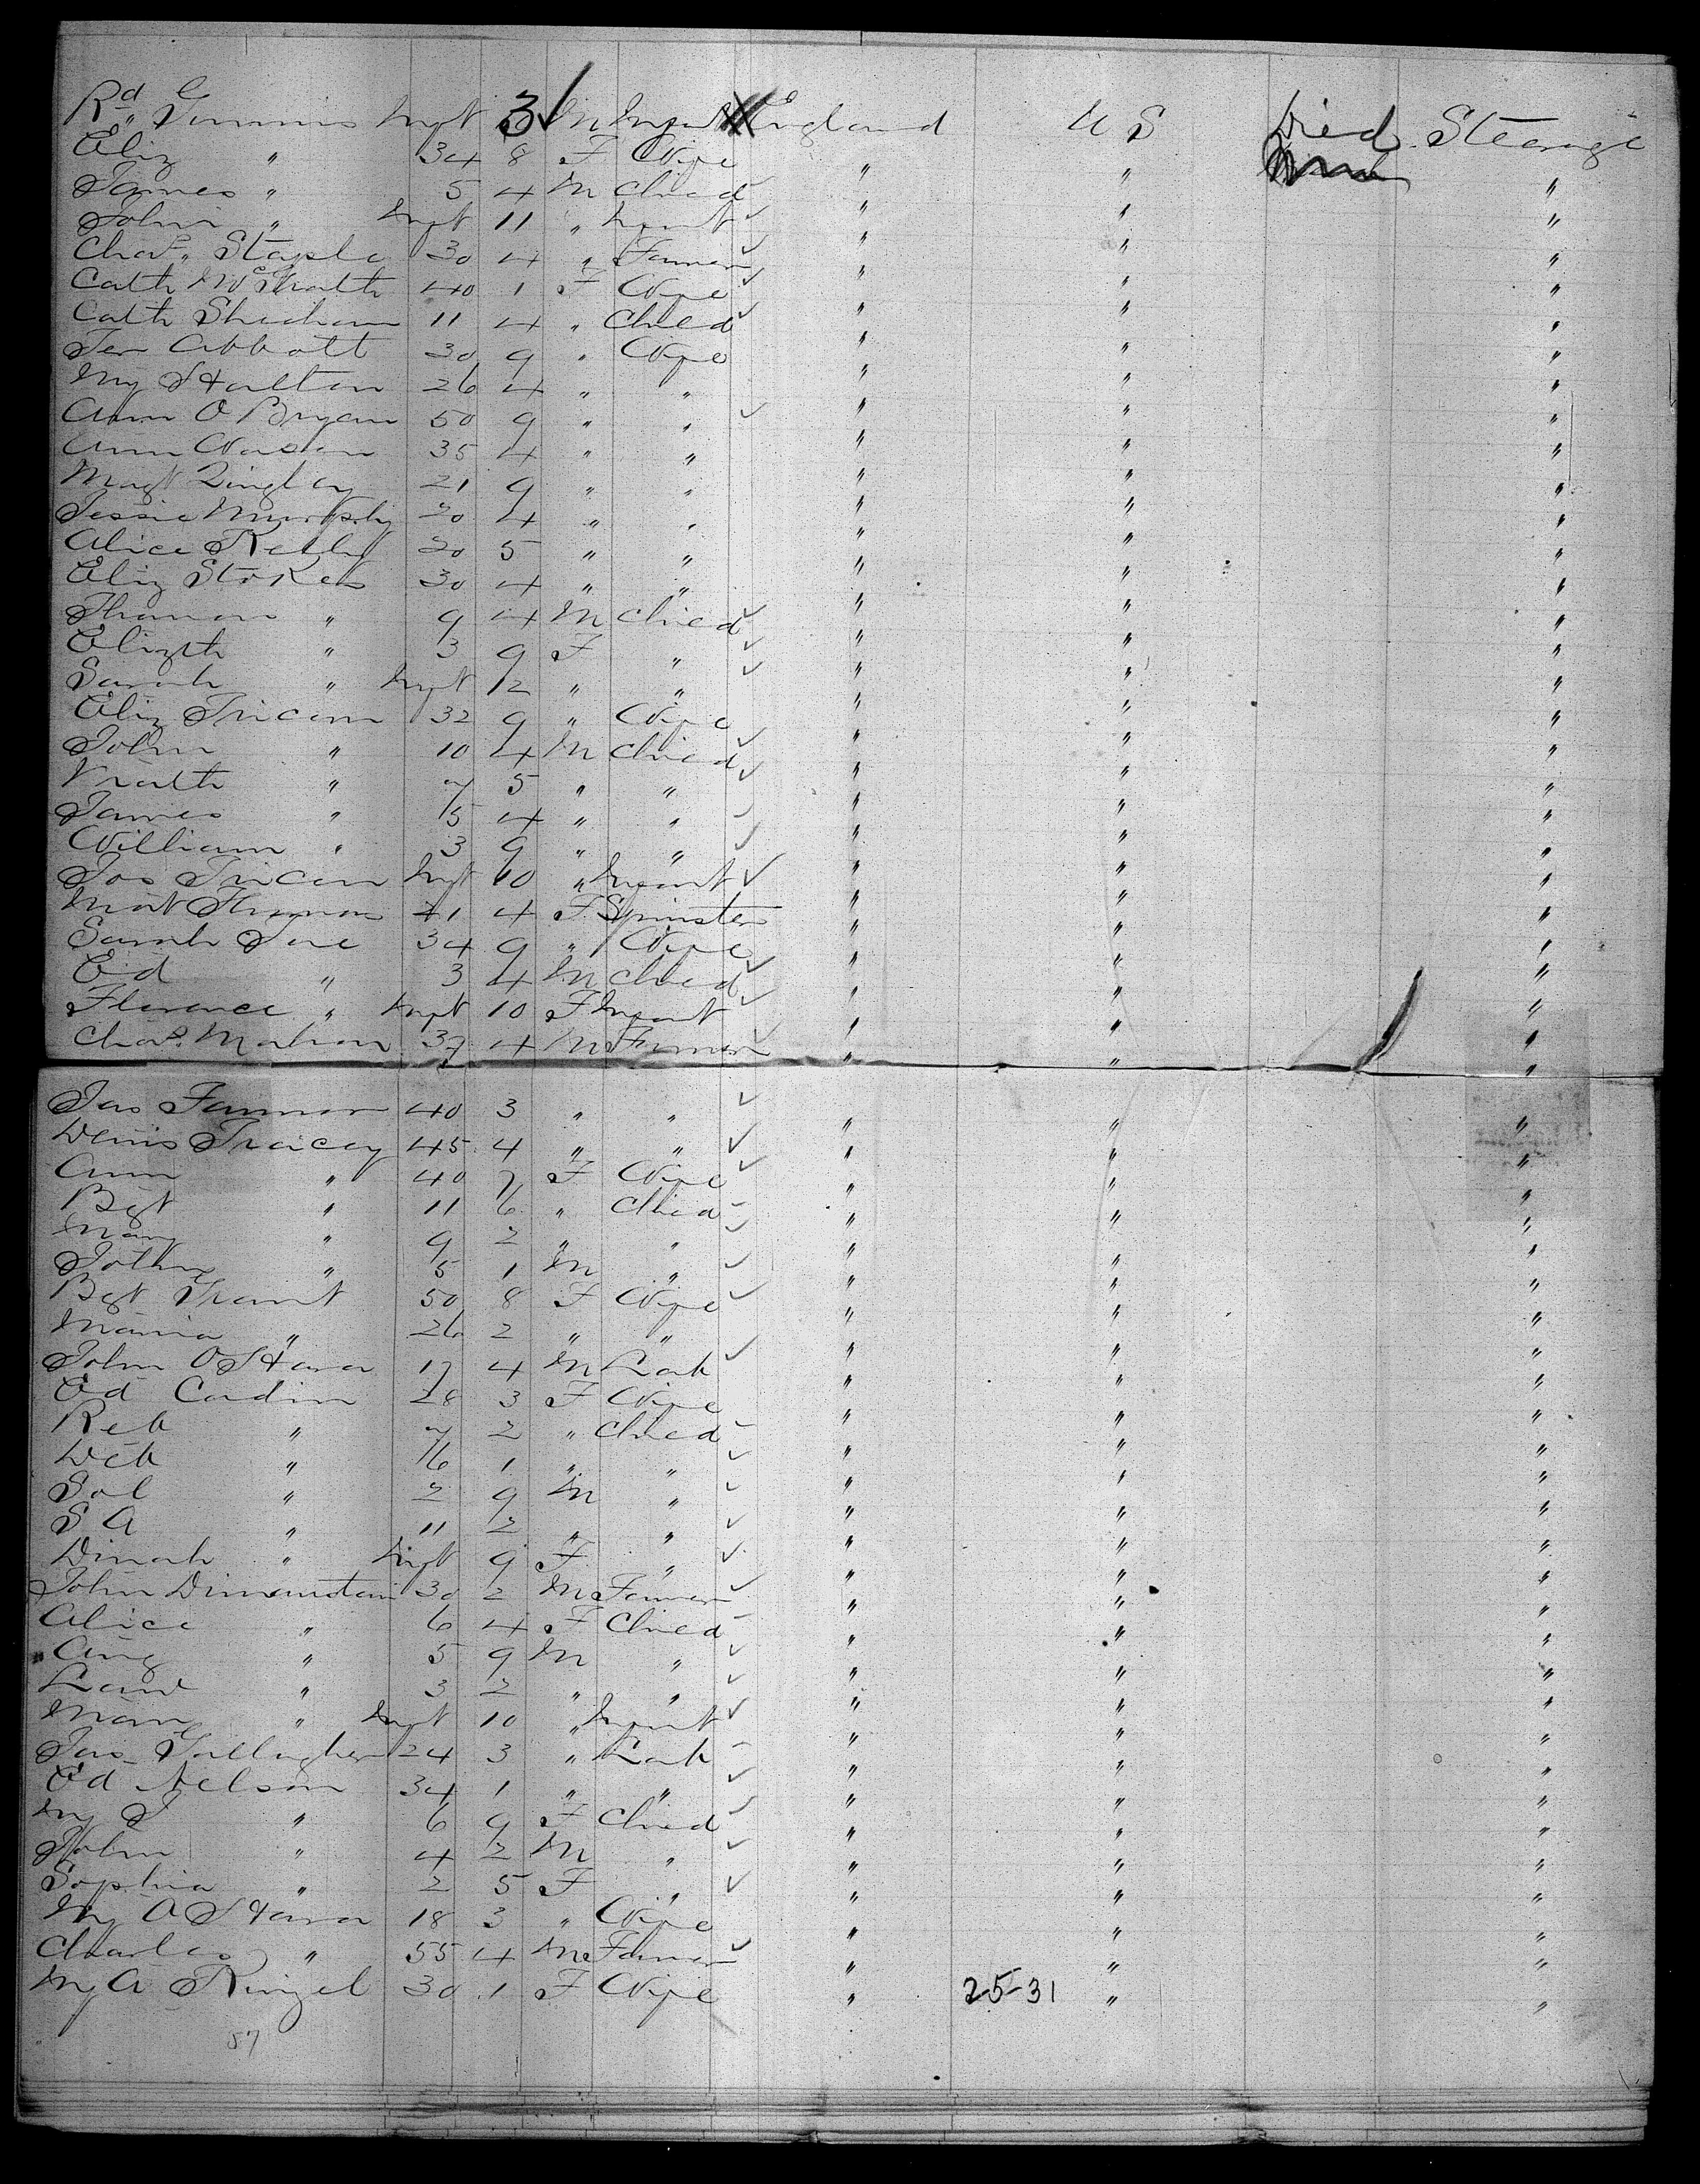 Rd Timmis Inft 3 M Infant England U S Died Steerage
Eliz " 34 8 F Wife " " "
James " 5 4 M Child " " "
John " Inft 11 " Infant " " "
Chas. Staple 30 4 " Farmer " " "
Cath McGrath 40 1 F Wife " " "
Cath Sheehan 11 4 " Child " " "
Jen Abbott 30 9 " Wife " " "
My Halton 26 4 " " " " "
Ann O Bryan 50 9 " " " " "
Ann 35 4 " " " " "
Magt 21 9 " " " " "
Jessie Murphy 20 4 " " " " "
Alice Reilly 20 5 " " " " "
Eliz Stokes 30 4 " " " " "
Thomas " 9 4 M Child " " "
Elizth " 3 9 F " " " "
Sarah " Inft 12 " " " " "
Eliz 32 9 " Wife " " "
John " 10 4 M Child " " "
" 7 5 " " " " "
James " 5 4 " " " " "
William " 3 9 " " " " "
Jos Inft 10 " Infant " " "
21 4 F Spinster " " "
Sarah 34 9 " Wife " " "
Ed " 3 4 M Child " " "
Florence " Inft 10 F Infant " " "
Chas. Mahon 37 4 M Farmer " " "
Jas Farmer 40 3 " " " " "
Denis Tracey 45 4 " " " " "
Ann " 40 7 F Wife " " "
Bgt " 11 6 " Child " " "
Mary " 9 2 " " " " "
John " 5 1 M " " " "
Bgt Grant 50 8 F Wife " " "
Maria " 26 2 " " " " "
John O Hara 17 4 M Lab " " "
Ed Cardin 28 3 F Wife " " "
Reb " 7 2 " Child " " "
Deb " 6 1 " " " " "
Sol " 2 9 M " " " "
S A " 11 2 " " " " "
Dinah " Inft 9 F " " " "
John 30 2 M Farmer " " "
Alice " 6 4 F Child " " "
Aug " 5 9 M " " " "
Law " 3 2 " " " " "
" Inft 10 " Infant " " "
Jas Gallagher 24 3 " Lab " " "
Ed Nelson 34 1 " " " " "
My J " 6 9 F Child " " "
John " 4 2 M " " " "
Sophia " 2 5 F " " " "
My O Hara 18 3 " Wife " " "
Charles " 55 4 M Farmer " " "
My A Ringel 30 1 F Wife " 25-31 " "
57